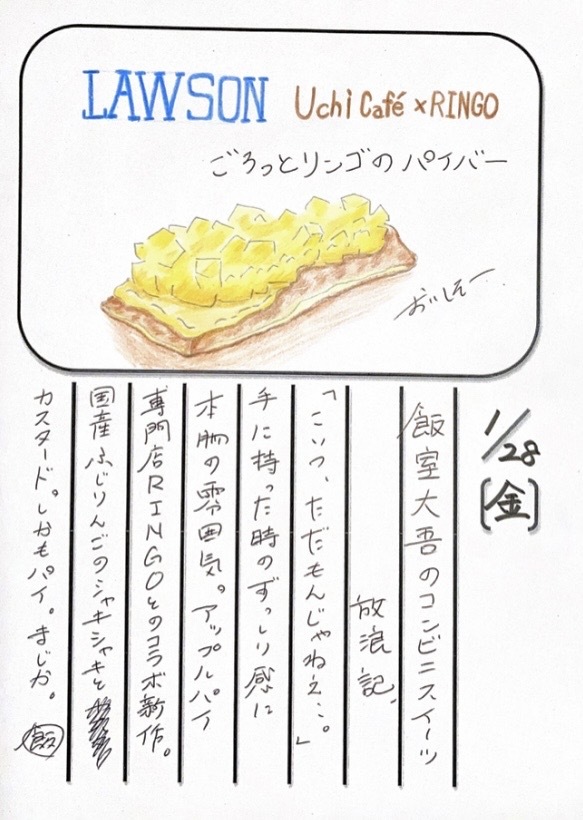 LAWSON Uchi Café × RINGO
ごろっとリンゴのパイバー
おいしそー
1/28
(金)
飯室大吾のコンビニスイーツ
放浪記。
「こいつ、ただもんじゃねえ…。」
手に持った時のずっしり感に
本物の雰囲気。アップルパイ
専門店RINGOとのコラボ新作。
国産ふじりんごのシャキシャキと
カスタード。しかもパイ。まじか。
飯